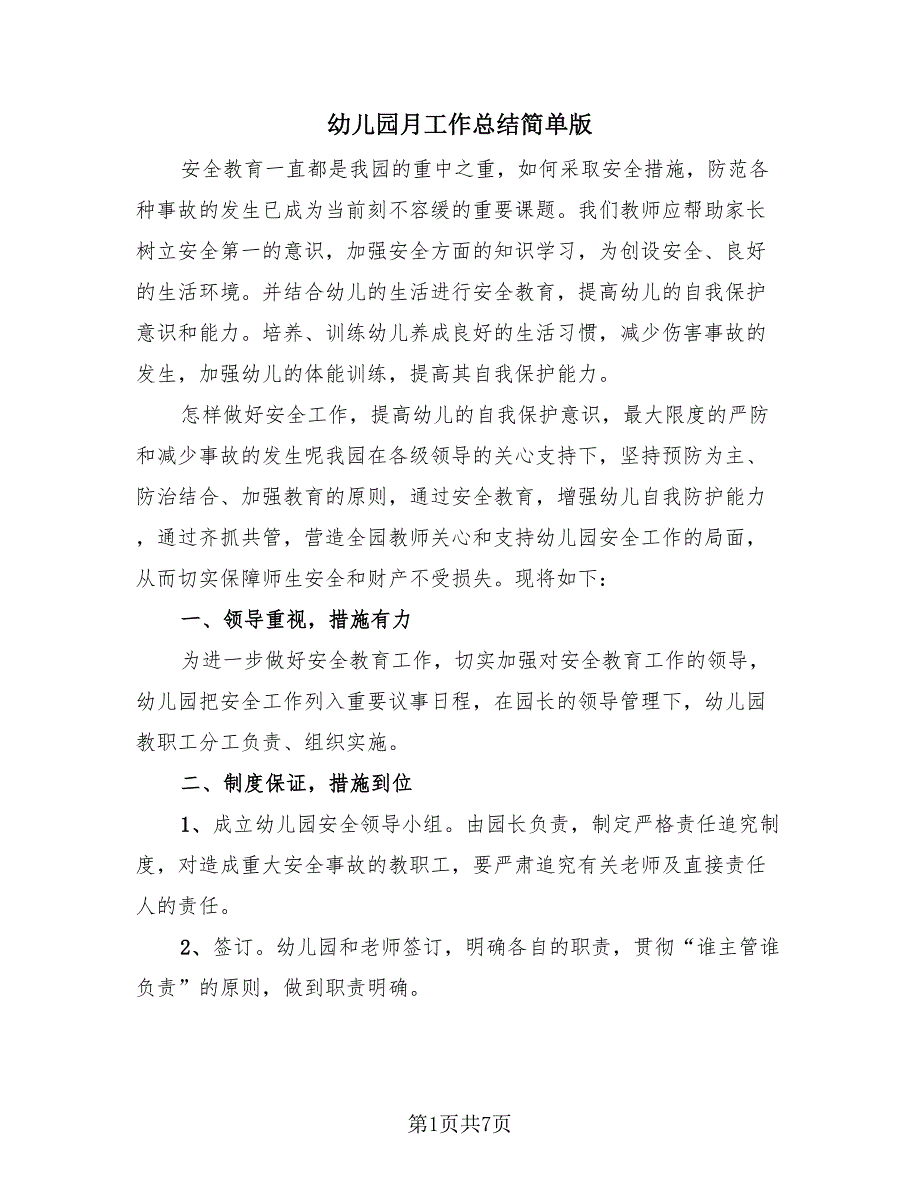 幼儿园月工作总结简单版
安全教育一直都是我园的重中之重，如何采取安全措施，防范各
种事故的发生已成为当前刻不容缓的重要课题。我们教师应帮助家长
树立安全第一的意识，加强安全方面的知识学习，为创设安全、良好
的生活环境。并结合幼儿的生活进行安全教育，提高幼儿的自我保护
意识和能力。培养、训练幼儿养成良好的生活习惯，减少伤害事故的
发生，加强幼儿的体能训练，提高其自我保护能力。
怎样做好安全工作，提高幼儿的自我保护意识，最大限度的严防
和减少事故的发生呢我园在各级领导的关心支持下，坚持预防为主、
防治结合、加强教育的原则，通过安全教育，增强幼儿自我防护能力
，通过齐抓共管，营造全园教师关心和支持幼儿园安全工作的局面，
从而切实保障师生安全和财产不受损失。现将如下：
一、领导重视，措施有力
为进一步做好安全教育工作，切实加强对安全教育工作的领导，
幼儿园把安全工作列入重要议事日程，在园长的领导管理下，幼儿园
教职工分工负责、组织实施。
二、制度保证，措施到位
1、成立幼儿园安全领导小组。由园长负责，制定严格责任追究制
度，对造成重大安全事故的教职工，要严肃追究有关老师及直接责任
人的责任。
2、签订。幼儿园和老师签订，明确各自的职责，贯彻“谁主管谁
负责”的原则，做到职责明确。
第1页共7页